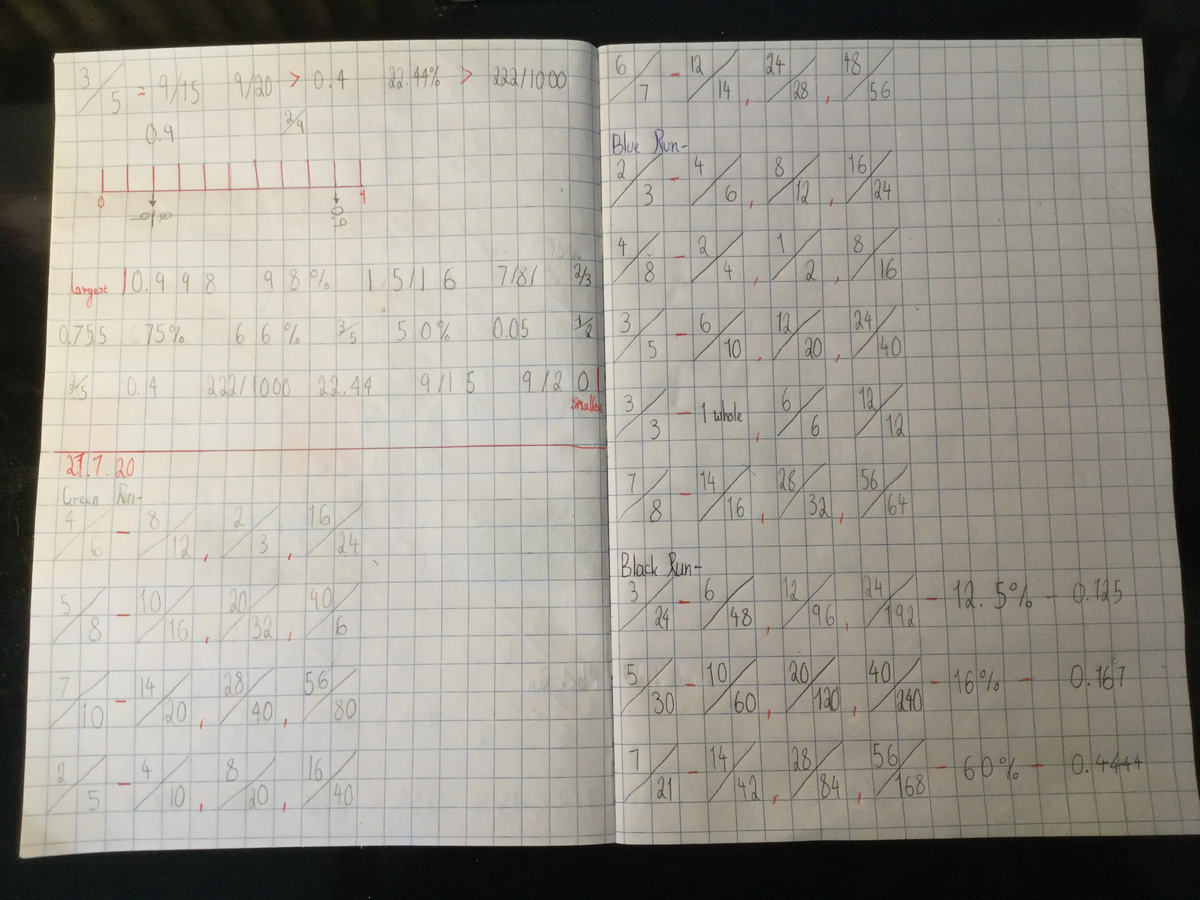 3/5 = 9/15 9/20 > 0.4 22.44% > 222/1000
0.9 2/9
0 1
0.9
largest 0.998 98% 15/16 7/8 2/3
0.755 75% 66% 3/5 50% 0.05 1/2
2/5 0.4 222/1000 22.44 9/15 9/2 0.1
smallest
27.7.20
Green Run-
4/6 - 8/12, 2/3, 16/24
5/8 - 10/16, 20/32, 40/6
7/10 - 14/20, 28/40, 56/80
2/5 - 4/10, 8/20, 16/40
6/7 - 12/14, 24/28, 48/56
Blue Run-
2/3 - 4/6, 8/12, 16/24
4/8 - 2/4, 1/2, 8/16
3/5 - 6/10, 12/20, 24/40
3/3 - 1 whole, 6/6 12/12
7/8 - 14/16, 28/32, 56/64
Black Run-
3/24 - 6/48, 12/96, 24/192 - 12.5% - 0.125
5/30 - 10/60, 20/120, 40/240 - 16% - 0.167
7/21 - 14/42, 28/84, 56/168 - 60% - 0.4444